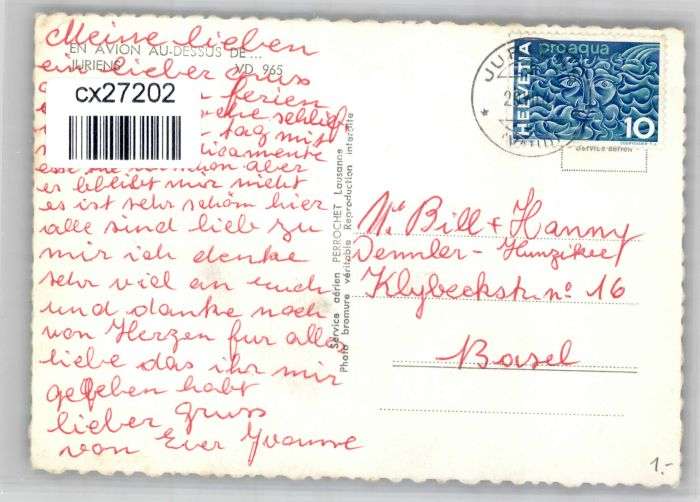 EN AVION AU-DESSUS DE...
JURIENS VD 965
Meine lieben
ein lieber Grus
ferien
schlief
tag mir
aber
es bleibt mir nicht
es ist sehr schön hier
alle sind lieb zu
mir ich denke
sehr viel an euch
und danke noch
von Herzen fur alles
liebe das ihr mir
gegeben habt
lieber gruss
von Ever Yvonne
cx27202
Service aérien PERROCHET Lausanne
Photo bromure véritable Reproduction interdite
HELVETIA
pro aqua
10
JUR
Service aérien
Bill + Hanny
Demmler - Hunziker
Klybeckstr. no 16
Basel
1.-